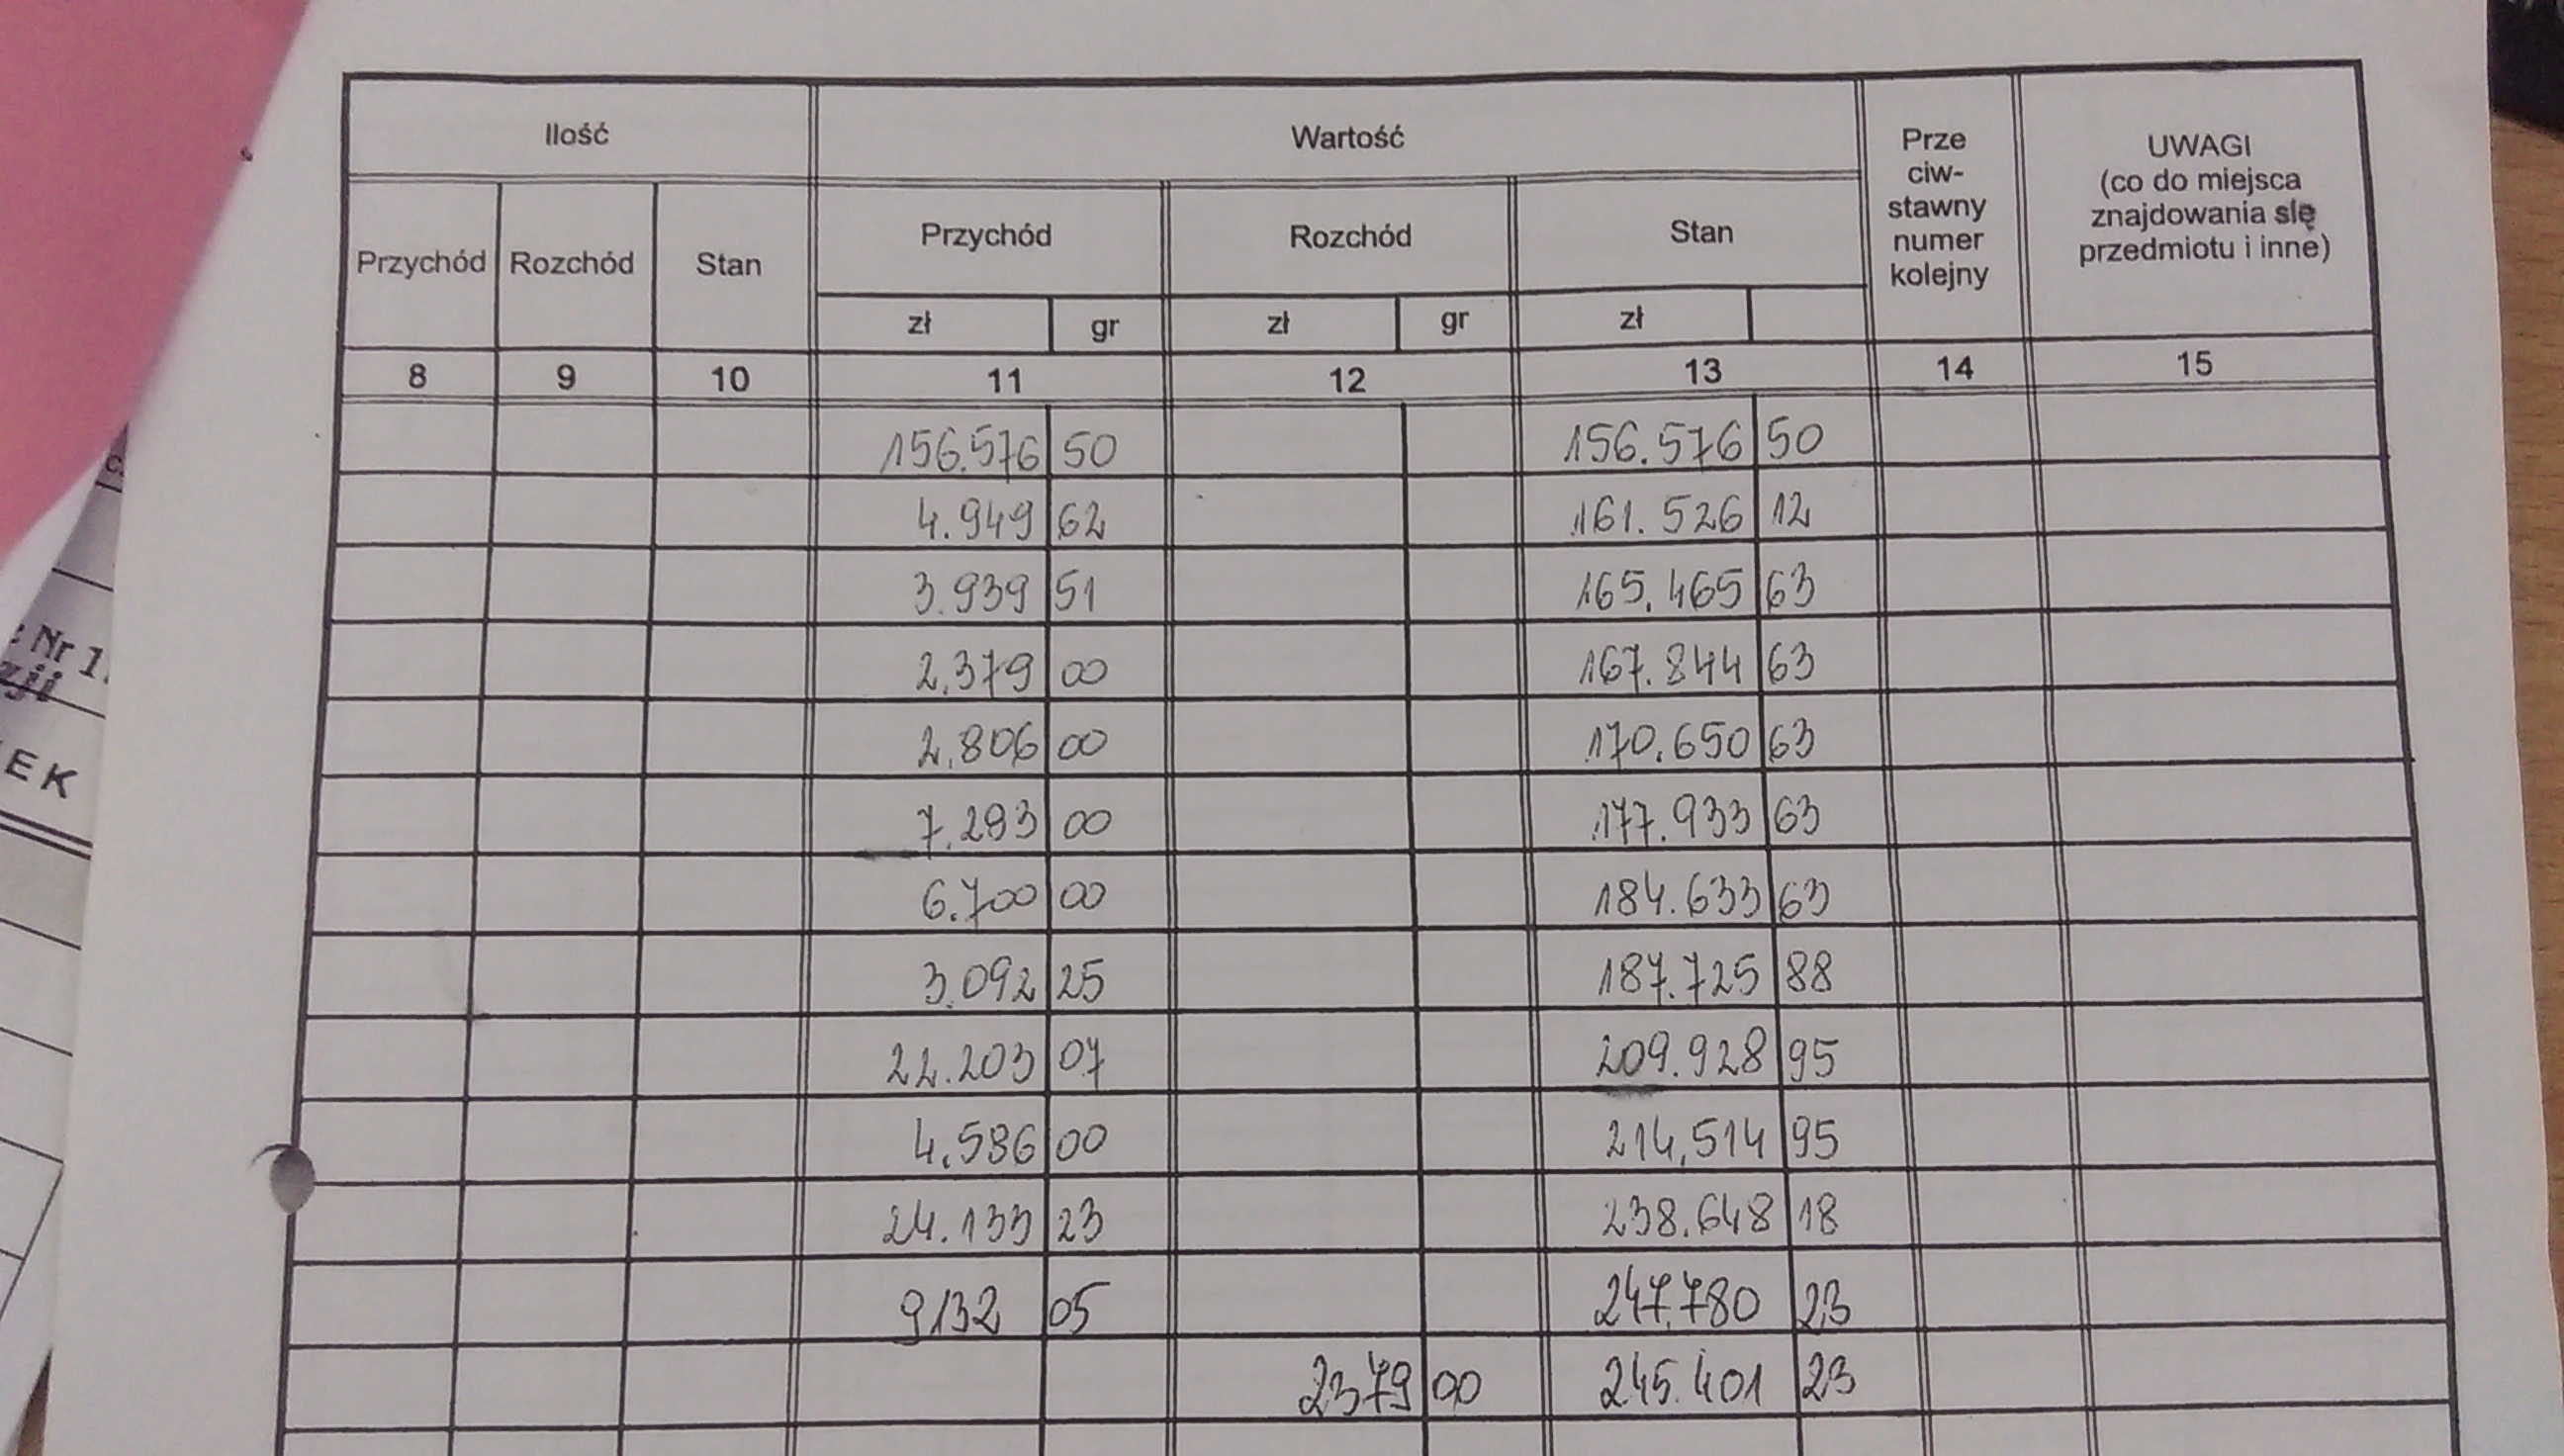 Ilość Wartość Prze
ciw-
stawny
numer
kolejny UWAGI
(co do miejsca
znajdowania się
przedmiotu i inne)
Przychód Rozchód Stan Przychód Rozchód Stan
zł gr zł gr zł
8 9 10 11 12 13 14 15
156.576 50 156.576 50
4.949 62 161.526 12
3.939 51 165.465 63
2.379 00 167.844 63
2.806 00 170.650 63
7.283 00 177.933 63
6.700 00 184.633 63
3.092 25 187.725 88
22.203 07 209.928 95
4.586 00 214.514 95
24.133 23 238.648 18
9132 05 247.780 23
2379 00 245.401 23
: Nr 1
zji
EK